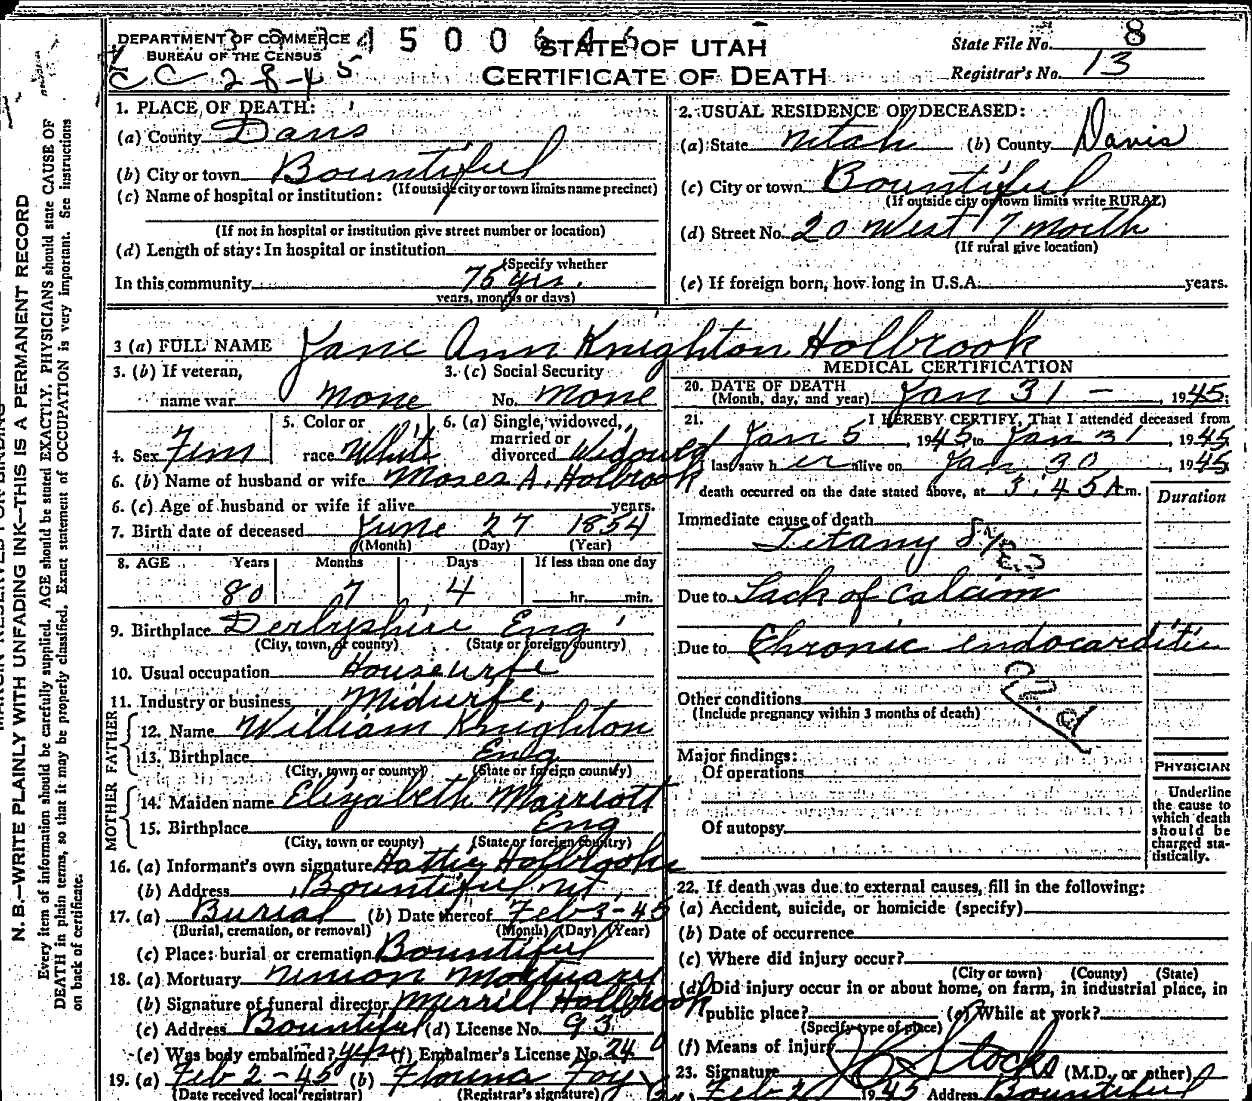 DEPARTMENT OF COMMERCE
BUREAU OF THE CENSUS
STATE OF UTAH
CERTIFICATE OF DEATH
State File No. 8
Registrar's No. 13
1. PLACE OF DEATH:
(a) County Davis
(b) City or town Bountiful
(If outside city or town limits name precinct)
(c) Name of hospital or institution:
(If not in hospital or institution give street number or location)
(d) Length of stay: In hospital or institution
(Specify whether
In this community 75 yrs.
years, months or days)
2. USUAL RESIDENCE OF DECEASED:
(a) State Utah (b) County Davis
(c) City or town Bountiful
(If outside city or town limits write RURAL)
(d) Street No. 20 West 7 North
(If rural give location)
(e) If foreign born, how long in U.S.A. years.
3 (a) FULL NAME Jane Ann Knighton Holbrook
3. (b) If veteran,
name war None
3. (c) Social Security
No. None
4. Sex Fem
5. Color or
race White
6. (a) Single, widowed,
married or
divorced Widowed
6. (b) Name of husband or wife Moses A. Holbrook
6. (c) Age of husband or wife if alive years.
7. Birth date of deceased June 27 1854
(Month) (Day) (Year)
8. AGE Years Months Days If less than one day
80 7 4 hr. min.
9. Birthplace Derbyshire Eng
(City, town, or county) (State or foreign country)
10. Usual occupation Housewife
11. Industry or business Midwife
FATHER
12. Name William Knighton
13. Birthplace Eng
(City, town or county) (State or foreign county)
MOTHER
14. Maiden name Elizabeth Marriott
15. Birthplace Eng
(City, town or county) (State or foreign country)
16. (a) Informant's own signature Hattie Holbrook
(b) Address Bountiful Ut
17. (a) Burial (b) Date thereof Feb 3-45
(Burial, cremation, or removal) (Month) (Day) (Year)
(c) Place: burial or cremation Bountiful
18. (a) Mortuary Union Mortuary
(b) Signature of funeral director Merrill Holbrook
(c) Address Bountiful (d) License No. 93
(e) Was body embalmed? yes (f) Embalmer's License No. 240
19. (a) Feb 2-45 (b) Foy
(Date received local registrar) (Registrar's signature)
MEDICAL CERTIFICATION
20. DATE OF DEATH
(Month, day, and year) Jan 31 - , 1945;
21. I HEREBY CERTIFY, That I attended deceased from
Jan 5, 1945 to Jan 31, 1945
I last saw her alive on Jan 30, 1945
death occurred on the date stated above, at 3:45 A m.
Duration
Immediate cause of death
Tetany
Due to Lack of Calcium
Due to Chronic endocarditis
Other conditions
(Include pregnancy within 3 months of death)
Major findings:
Of operations
Of autopsy
PHYSICIAN
Underline
the cause to
which death
should be
charged sta-
tistically.
22. If death was due to external causes, fill in the following:
(a) Accident, suicide, or homicide (specify)
(b) Date of occurrence
(c) Where did injury occur?
(City or town) (County) (State)
(d) Did injury occur in or about home, on farm, in industrial place, in
public place? (e) While at work?
(Specify type of place)
(f) Means of injury
23. Signature Stocks (M.D. or other)
Feb 2 1945 Address Bountiful
N. B.—WRITE PLAINLY WITH UNFADING INK—THIS IS A PERMANENT RECORD
Every item of information should be carefully supplied. AGE should be stated EXACTLY. PHYSICIANS should state CAUSE OF
DEATH in plain terms, so that it may be properly classified. Exact statement of OCCUPATION is very important. See instructions
on back of certificate.